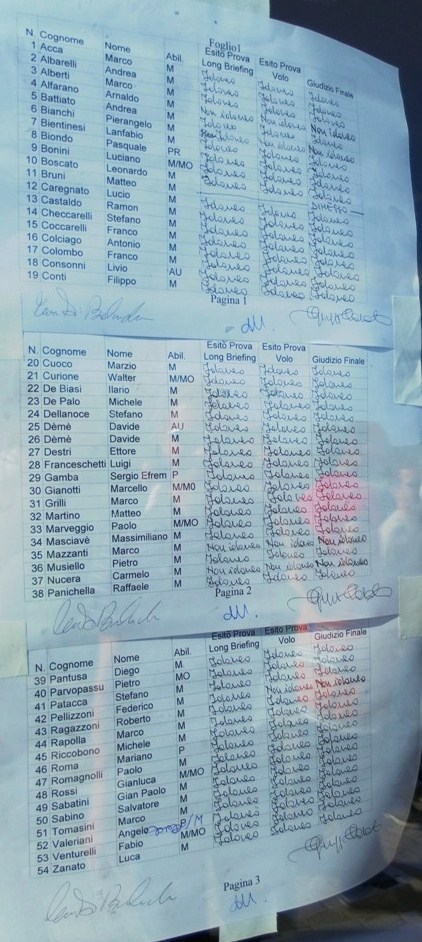 Foglio1
N. Cognome Nome Abil. Esito Prova Long Briefing Esito Prova Volo Giudizio Finale
1 Acca Marco M Idoneo Idoneo Idoneo
2 Albarelli Andrea M Idoneo Idoneo Idoneo
3 Alberti Marco M Idoneo Idoneo Idoneo
4 Alfarano Arnaldo M Non idoneo Non idoneo Non idoneo
5 Battiato Andrea M Idoneo Idoneo Idoneo
6 Bianchi Pierangelo M Non idoneo Non idoneo Non idoneo
7 Bientinesi Lanfabio M Idoneo Idoneo Idoneo
8 Biondo Pasquale PR Idoneo Idoneo Idoneo
9 Bonini Luciano M/MO Idoneo Idoneo Idoneo
10 Boscato Leonardo M Idoneo Idoneo Idoneo
11 Bruni Matteo M
12 Caregnato Lucio M Idoneo Idoneo Idoneo
13 Castaldo Ramon M Idoneo Idoneo Idoneo
14 Checcarelli Stefano M Idoneo Idoneo Idoneo
15 Coccarelli Franco M Idoneo Idoneo Idoneo
16 Colciago Antonio M Idoneo Idoneo Idoneo
17 Colombo Franco M Idoneo Idoneo Idoneo
18 Consonni Livio AU Idoneo Idoneo Idoneo
19 Conti Filippo M Idoneo Idoneo Idoneo
Pagina 1
N. Cognome Nome Abil. Esito Prova Long Briefing Esito Prova Volo Giudizio Finale
20 Cuoco Marzio M Idoneo Idoneo Idoneo
21 Curione Walter M/MO Idoneo Idoneo Idoneo
22 De Biasi Ilario M Idoneo Idoneo Idoneo
23 De Palo Michele M Idoneo Idoneo Idoneo
24 Dellanoce Stefano M Idoneo Idoneo Idoneo
25 Dèmè Davide AU Idoneo Idoneo Idoneo
26 Dèmè Davide M Idoneo Idoneo Idoneo
27 Destri Ettore M Idoneo Idoneo Idoneo
28 Franceschetti Luigi M Idoneo Idoneo Idoneo
29 Gamba Sergio Efrem P Idoneo Idoneo Idoneo
30 Gianotti Marcello M/M0 Idoneo Idoneo Idoneo
31 Grilli Marco M Idoneo Idoneo Idoneo
32 Martino Matteo M Idoneo Idoneo Idoneo
33 Marveggio Paolo M/MO Idoneo Idoneo Idoneo
34 Masciavè Massimiliano M Idoneo Idoneo Idoneo
35 Mazzanti Marco M Non idoneo Non idoneo Non idoneo
36 Musiello Pietro M Idoneo Idoneo Idoneo
37 Nucera Carmelo M Non idoneo Non idoneo Non idoneo
38 Panichella Raffaele M Idoneo Idoneo Idoneo
Pagina 2
N. Cognome Nome Abil. Esito Prova Long Briefing Esito Prova Volo Giudizio Finale
39 Pantusa Diego M Idoneo Idoneo Idoneo
40 Parvopassu Pietro MO Idoneo Idoneo Idoneo
41 Patacca Stefano M Idoneo Idoneo Idoneo
42 Pellizzoni Federico M Idoneo Non idoneo Non idoneo
43 Ragazzoni Roberto M Idoneo Idoneo Idoneo
44 Rapolla Marco M Idoneo Idoneo Idoneo
45 Riccobono Michele M Idoneo Idoneo Idoneo
46 Roma Mariano P Idoneo Idoneo Idoneo
47 Romagnolli Paolo M Idoneo Idoneo Idoneo
48 Rossi Gianluca M/MO Idoneo Idoneo Idoneo
49 Sabatini Gian Paolo M Idoneo Idoneo Idoneo
50 Sabino Salvatore M Idoneo Idoneo Idoneo
51 Tomasini Marco M Idoneo Idoneo Idoneo
52 Valeriani Angelo P/M Idoneo Idoneo Idoneo
53 Venturelli Fabio M/MO Idoneo Idoneo Idoneo
54 Zanato Luca M Idoneo Idoneo Idoneo
Pagina 3